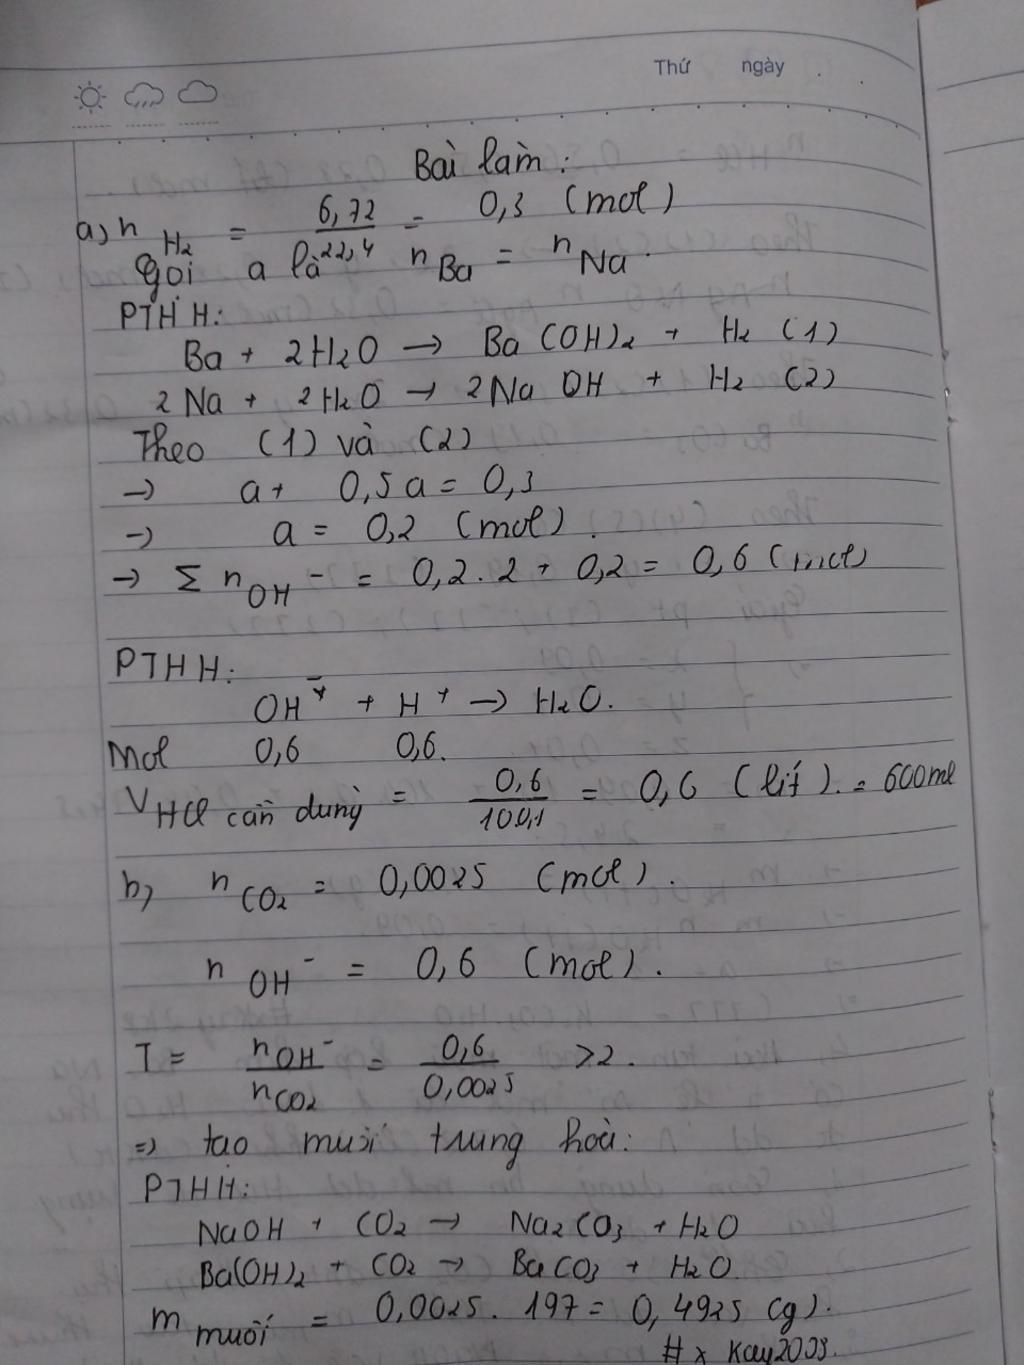 Thứ ngày
Bài làm:
a, n H₂ = 6,72 / 22,4 = 0,3 (mol)
Gọi a là n Ba = n Na.
PTHH:
Ba + 2H₂O → Ba(OH)₂ + H₂ (1)
2Na + 2H₂O → 2NaOH + H₂ (2)
Theo (1) và (2)
→ a + 0,5a = 0,3
→ a = 0,2 (mol).
→ Σ n OH⁻ = 0,2.2 + 0,2 = 0,6 (mol)
PTHH:
OH⁻ + H⁺ → H₂O.
Mol 0,6 0,6.
V HCl cần dùng = 0,6 / = 0,6 (lít). = 600ml
b, n CO₂ = 0,0025 (mol).
n OH⁻ = 0,6 (mol).
T = nOH⁻ / nCO₂ = 0,6 / 0,0025 >2.
⇒ tạo muối trung hoà:
PTHH:
NaOH + CO₂ → Na₂CO₃ + H₂O
Ba(OH)₂ + CO₂ → BaCO₃ + H₂O.
m muối = 0,0025 . 197 = 0,4925 (g).
# x Kay2008.